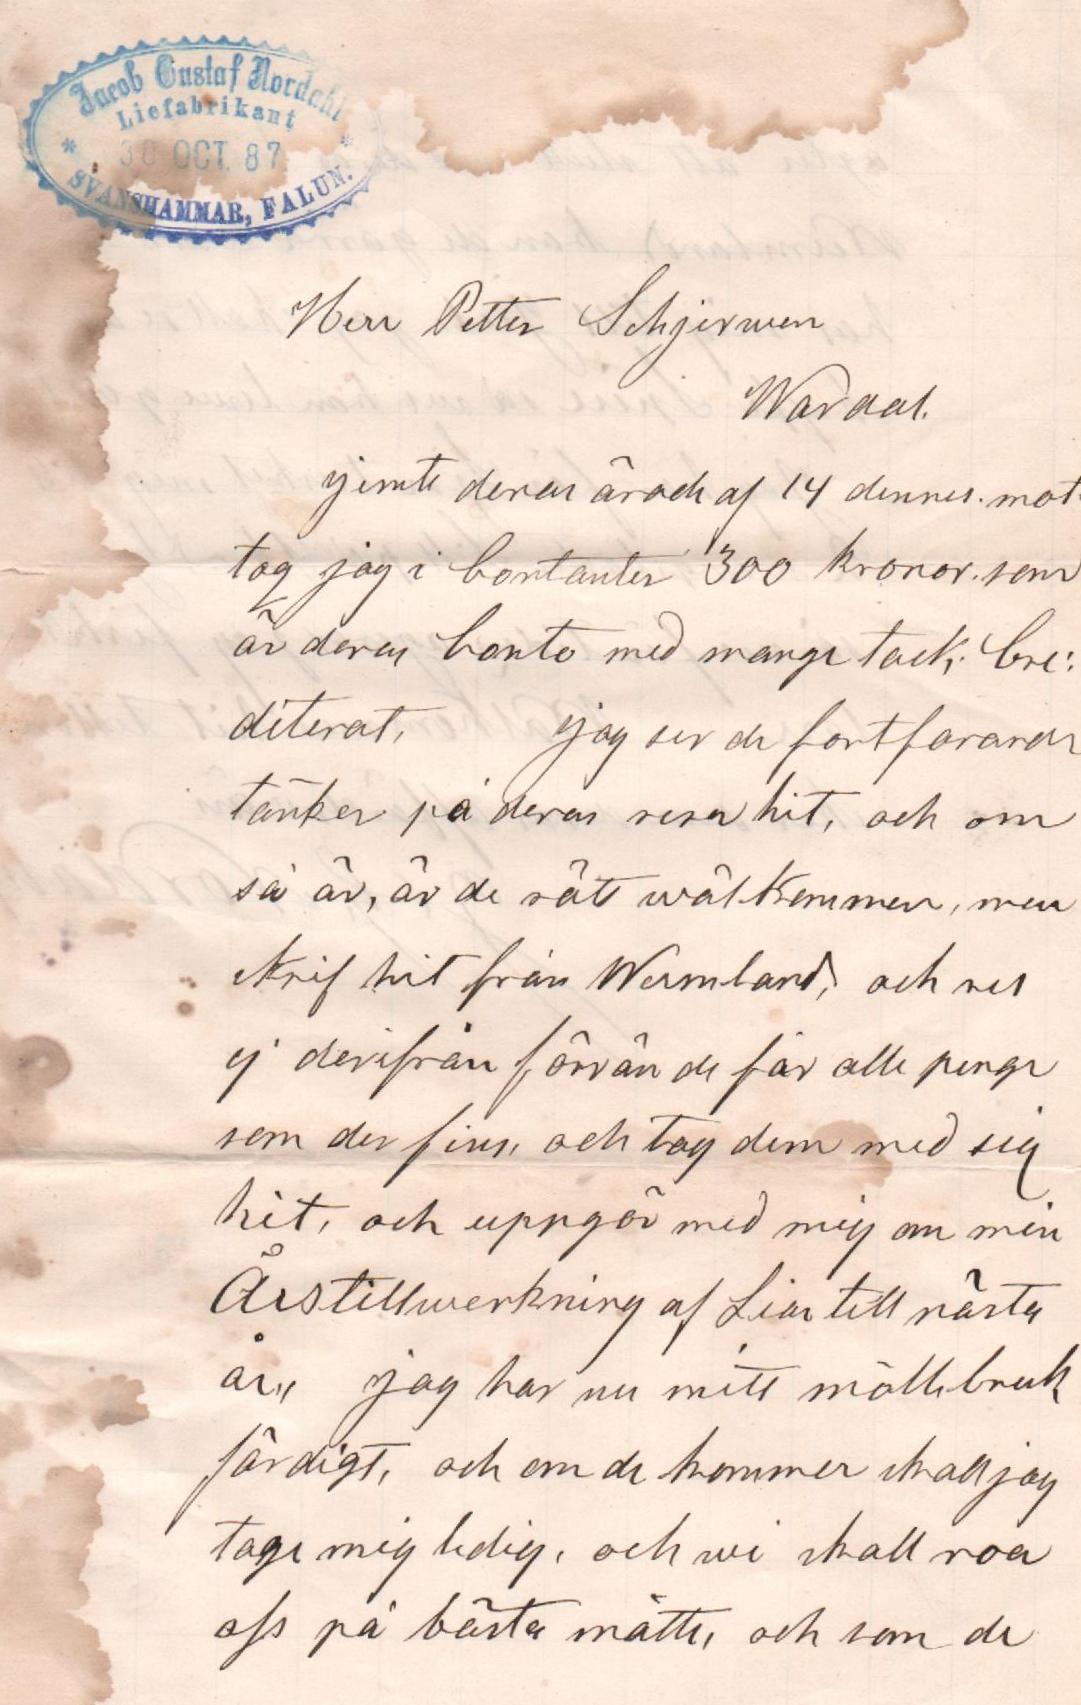 Jacob Gustaf Nordahl
Liefabrikant
30 OCT. 87
SVANSHAMMAR, FALUN.
Herr Petter Schjerwen
Wardal.
jemte deras ärade af 14 dennes. mot
tog jag i Contanter 300 kronor. som
är deras Conto med mange tack, Cre:
diterat, jag ser de fortfarande
tänker på deras resa hit, och om
så är, är de rätt wälkommen, men
skrif hit från Wermland, och res
ej derifrån förrän de får alle penge
som der fins, och tag dem med sig
hit, och uppgör med mig om min
Årstillwerkning af Liar till nästa
år,, jag har nu mitt nya bruk
färdigt, och om de kommer skall jag
tage mig ledig, och wi skall roa
oss på bästa mätte, och som de